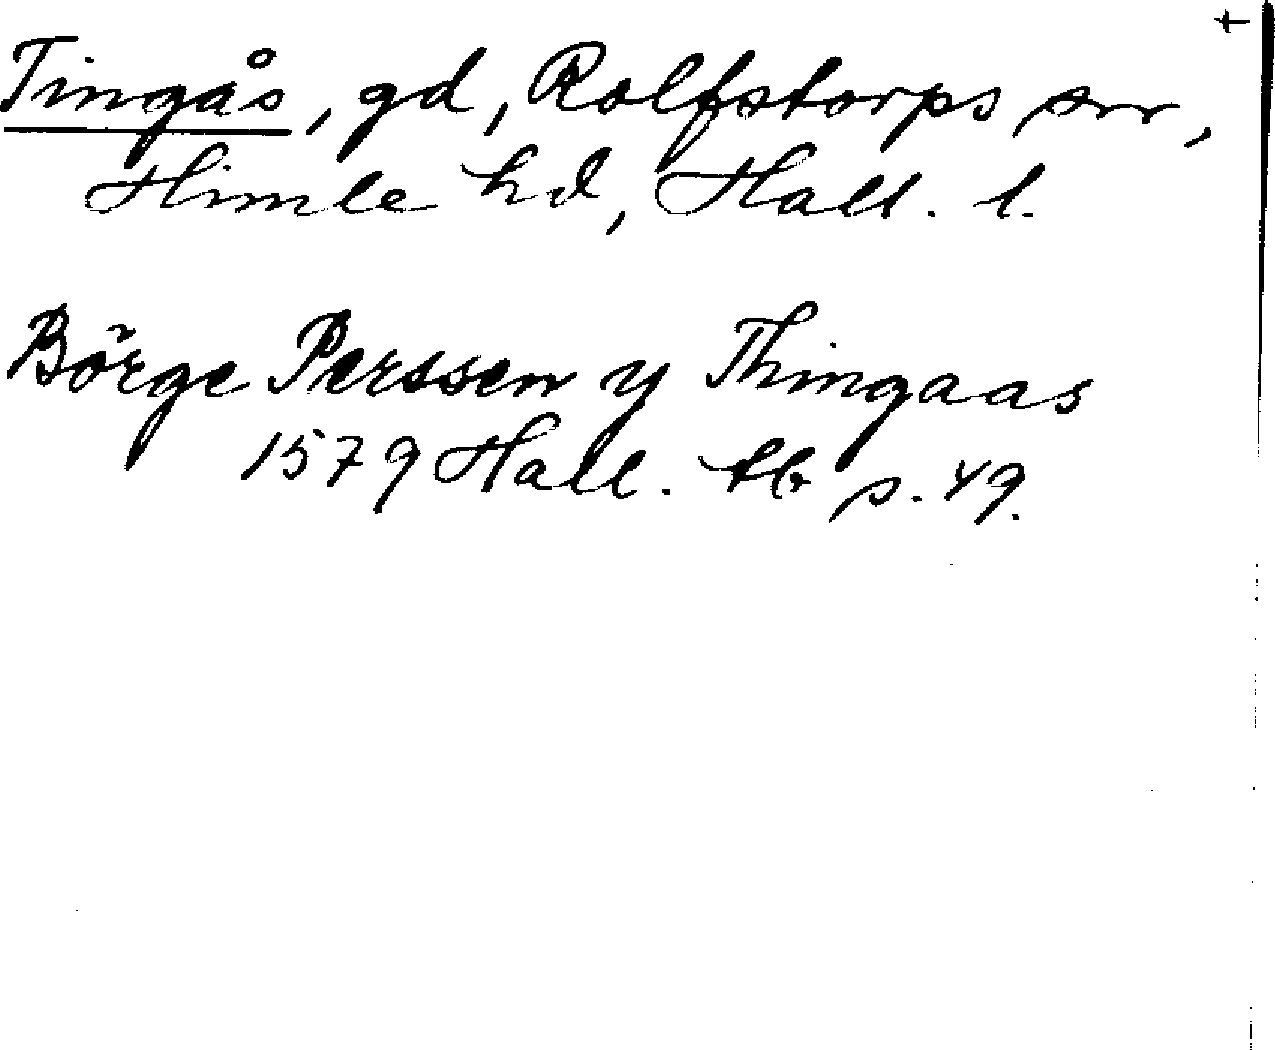 Tingås, gd, Rolfstorps sn,
Himle hd, Hall. l.
Börge Perssen y Thingaas
1579 Hall. tb s. 49.